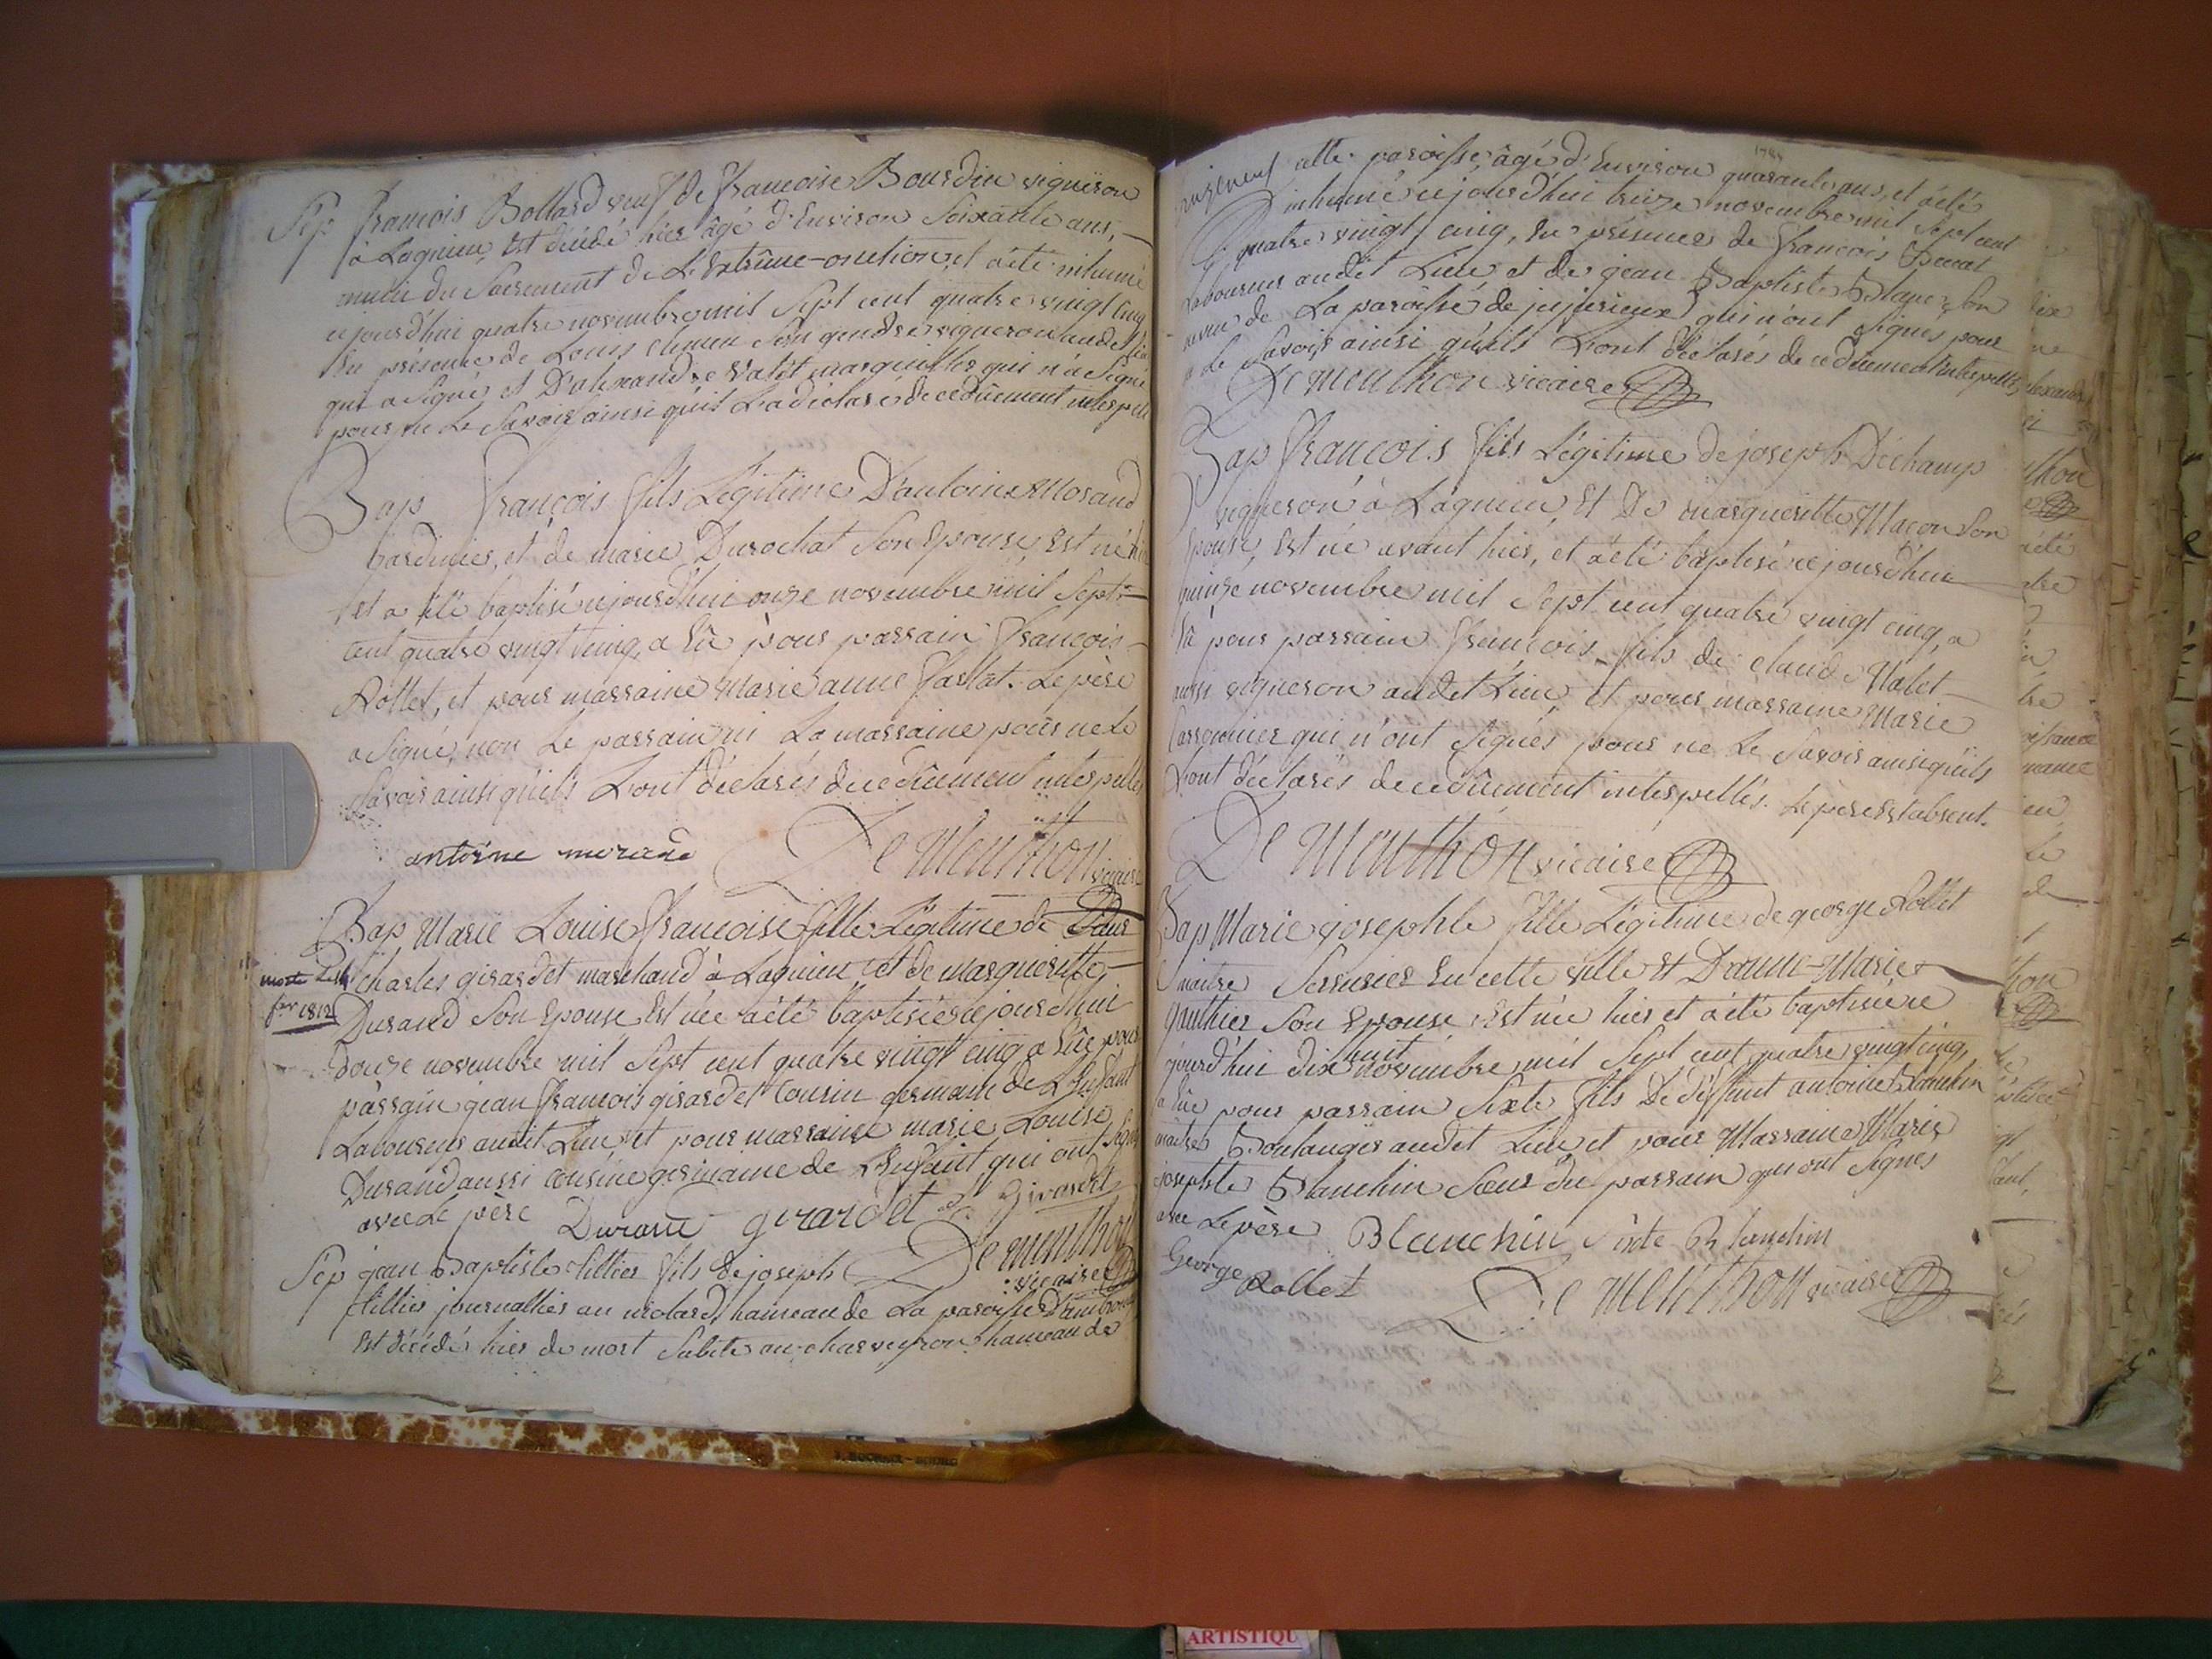 Sep françois Bottard veuf de francoise Bourdin vigneron
à Lagnieu, Est décédé hier âgé d'Environ Soixante ans,
munie du Sacrement de L'Extrême-onction, et a été inhumé
cejourd'hui quatre novembre mil Sept cent quatre vingt Cinq
En présence de Louis Son gendre vigneron audit
qui a Signé, et D'alexandre Valet marguillier qui n'a Signé
pour ne Le Savoir ainsi qu'il L'a déclaré de ce dûement interpellé
Bap françois fils Légitime D'antoine Morand
et de marie Durochat Son Epouse, Est né
et a été baptisé cejourd'hui onze novembre mil Sept
cent quatre vingt Cinq, a Eû pour parrain françois
Rollet, et pour marraine Marie anne farlat. Le père
a Signé, non Le parrain ni La marraine pour ne Le
Savoir ainsi qu'ils L'ont déclarés de ce dûement interpellés
antoine morand De Menthon vicaire
Bap Marie Louise francoise fille Légitime de
morte Le
fer 1812
Charles girardet marchand à Lagnieu, et de marguerite
Durand Son Epouse Est née a été baptisée cejourd'hui
douze novembre mil Sept cent quatre vingt cinq a Eûe pour
parrain jean francois girardet Cousin germain de L'Enfant
Laboureur audit Lieu, et pour marraine marie Louise
Durand aussi cousine germaine de L'Enfant qui ont Signé
avec Le père Durand girardet Girardet
De menthon
vicaire
Sep jean Baptiste tillier fils de joseph
tillier journallier au molard, hameau de La paroisse D'ambronay
Est décédé hier de mort Subite au charveyron hameau de
1785
cette paroisse, âgé d'Environ quarante ans, et a été
inhumé cejourd'hui treize novembre mil Sept cent
quatre vingt cinq, En présence de François
Laboureur audit Lieu et de jean Baptiste
de La paroisse de jujurieux qui n'ont Signés pour
ne Le Savoir ainsi qu'ils L'ont déclarés de ce dûement interpellés
De menthon vicaire
Bap françois fils Légitime de joseph Déchamp
vigneron à Lagnieu, Et De margueritte Maçon Son
Epouse, Est né avant hier, et a été baptisé cejourd'hui
quinze novembre mil Sept cent quatre vingt cinq, a
Eû pour parrain françois fils de claude Valet
aussi vigneron audit Lieu, et pour marraine Marie
qui n'ont Signés pour ne Le Savoir ainsi qu'ils
L'ont déclarés de ce dûement interpellés. Le pere est absent.
De Menthon vicaire
Bap Marie josephte fille Légitime de george Rollet
maitre Serrurier En cette ville Et D'anne-Marie
gauthier Son Epouse Est née hier et a été baptisée ce
huit
jourd'hui dix novembre mil Sept cent quatre vingt cinq,
a Eûe pour parrain Sixte fils De deffunt antoine Blanchin
maitre Boulanger audit Lieu, et pour Marraine Marie
josephte Blanchin Soeur du parrain qui ont Signés
avec Le père Blanchin Sixte Blanchin
George Rollet De menthon vicaire
ARTISTIQU